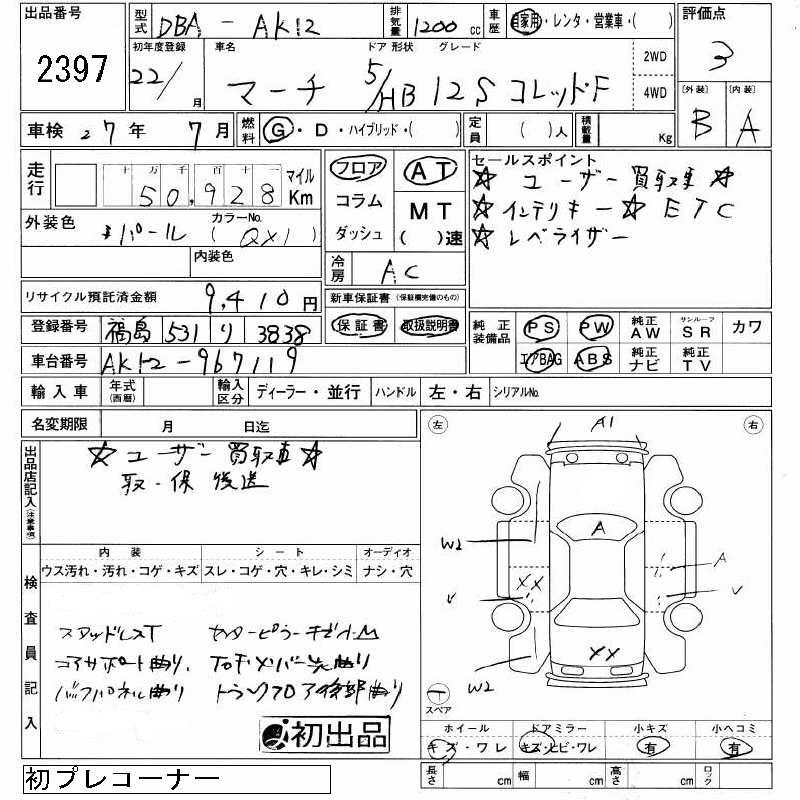 出品番号 2397
型式 DBA - AK12 排気量 1200 cc 車歴 自家用・レンタ・営業車・( )
評価点 3
初年度登録 22/ 月 車名 マーチ ドア 形状 5/HB グレード 12S コレットF 2WD 4WD
〔外装〕 B 〔内装〕 A
車検 27年 7月 燃料 G・D・ハイブリッド・( ) 定員 ( )人 積載量 Kg
走行 十万千百十一 50,928 マイル Km
フロア コラム ダッシュ
AT MT ( )速
セールスポイント
☆ ユーザー買取車 ☆
☆ インテリキー ☆ ETC
☆ レベライザー
外装色 パール カラーNo. (QX1)
内装色
冷房 AC
リサイクル預託済金額 9,410円
新車保証書 (保証欄完備のもの)
保証書 取扱説明書
登録番号 福島 531 り 3838
純正装備品 PS PW 純正AW サンルーフSR カワ
エアBAG ABS 純正ナビ 純正TV
車台番号 AK12-967119
輸入車 年式(西暦) 輸入区分 ディーラー・並行 ハンドル 左・右 シリアルNo.
名変期限 月 日迄
出品店記入(注意事項)
☆ ユーザー買取車 ☆
取・保 後送
検査員記入
内装 シート オーディオ
ウス汚れ・汚れ・コゲ・キズ スレ・コゲ・穴・キレ・シミ ナシ・穴
スタッドレスT センターピラーキズ小M
コアサポート曲り、
バックパネル曲り トランクフロア後部曲り
初出品
初プレコーナー
左 右
A1
W2
A
XX
A
V
V
XX
W2
スペア
ホイール ドアミラー 小キズ 小ヘコミ
キズ・ワレ キズ・ヒビ・ワレ 有 有
長さ cm 幅 cm 高さ cm ロック